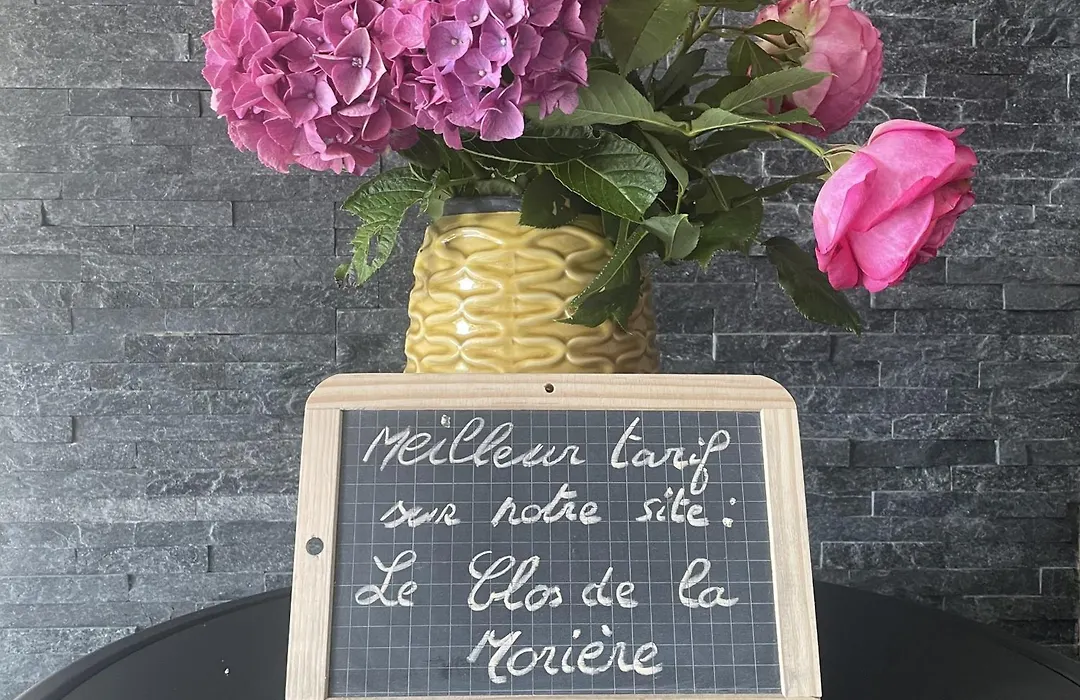 Meilleur tarif
sur notre site :
Le Clos de la
Morière